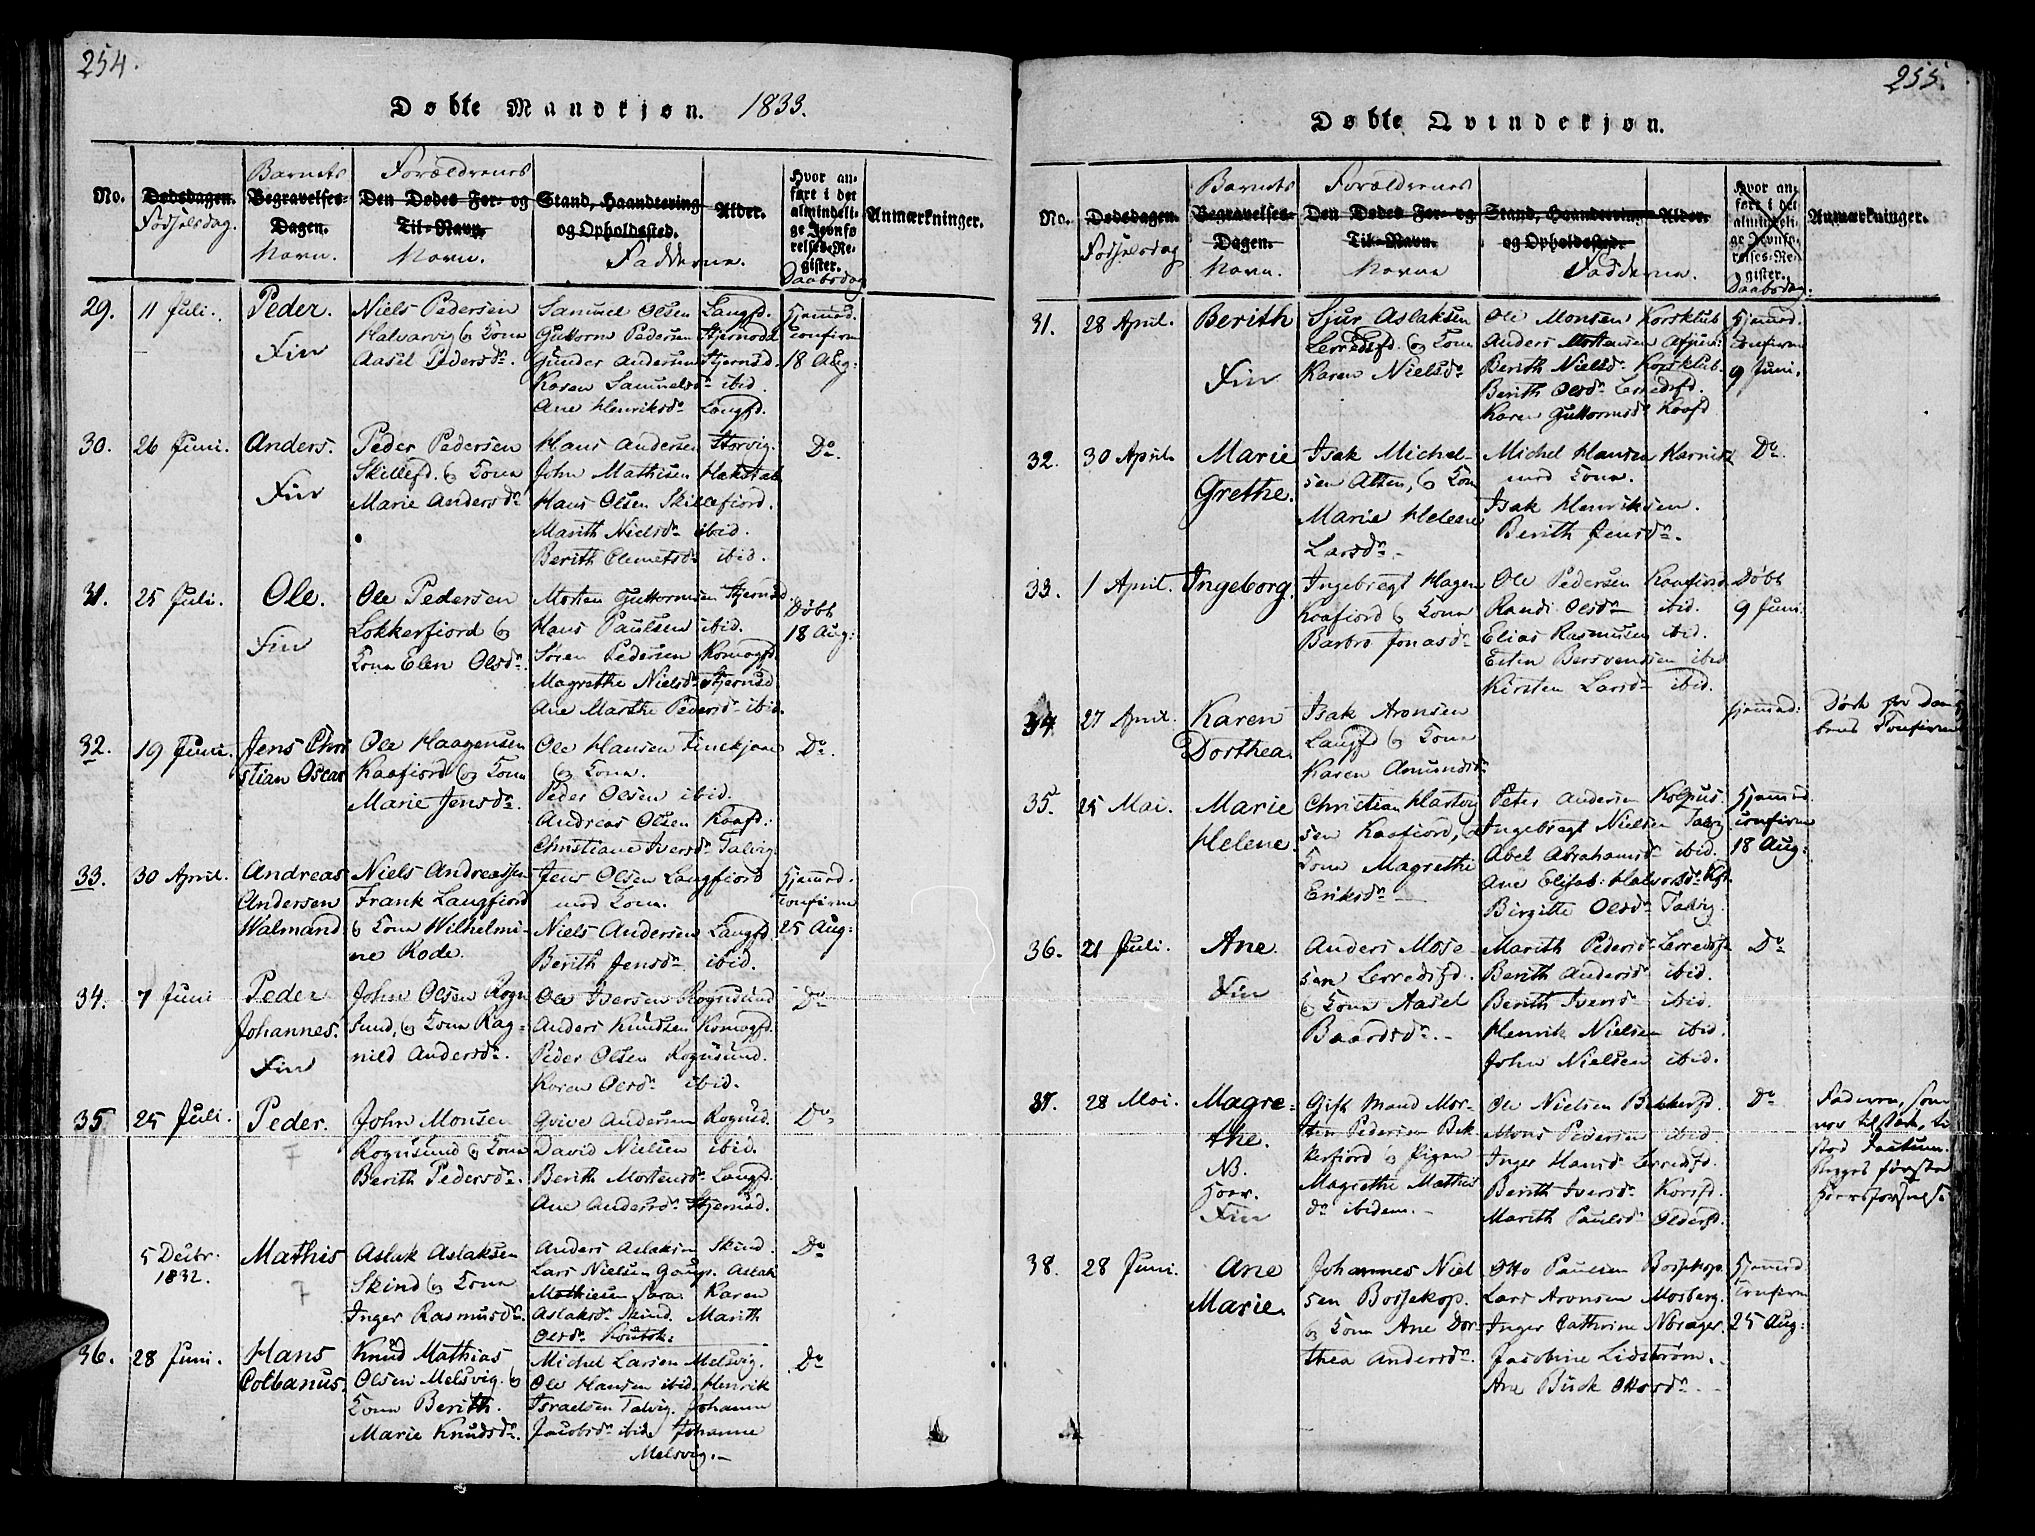 254.
Døbte Mandkjøn. 1833.
No.
Dødsdagen.
Fødselsdag.
Barnets
Begravelses-
Dagen.
Navn.
Forældrenes
Den Dødes For- og
Til-Navn.
Navn.
Stand, Haandtering
og Opholdssted.
Alder.
Faddernes.
Hvor an-
ført i det
almindeli-
ge Jevnfø-
relses-Re-
gister.
Daabsdag
Anmærkninger.
29.
11 Juli.
Peder.
Fin
Niels Pedersen
Halvarvig og Kona
Aasel Pedersdr.
Samuel Olsen Langfd.
Guttorm Pedersen Stjernsd
Gunder Andersen Stjernsd.
Karen Samuelsdr ibid.
Ane Henriksdr Langfd.
Hjemmd.
confirm
18 Aug:
30.
26 Juni.
Anders.
Fin
Peder Pedersen
Skillefd. og Kona
Marie Andersdr
Hans Andersen Storvig.
John Mathisen Hakstab
Hans Olsen Skillefiord.
Marith Nielsdr ibid.
Berith Clemetsdr ibid.
Do.
31.
25 Juli.
Ole.
Fin
Ole Pedersen
Lokkerfiord og
Kona Elen Olsdr.
Morten Guttormsen Stjernsd.
Hans Paulsen ibid.
Søren Pedersen Komagfd.
Magrethe Nielsdr Stjernsd.
Ane Marthe Pedersdr ibid.
Døbt
18 Aug:
32.
19 Juni.
Jens Chri
stian Oscar
Ole Haagensen
Kaafiord og Kona
Marie Jensdr.
Ole Hansen Finckjonn
og Kona.
Peder Olsen ibid.
Andreas Olsen Kaafd:
Christiane Iversdr Talvig.
Do.
33.
30 April.
Andreas
Andersen
Walmand
Niels Andreassen
Frank Langfiord
og Kona Wilhelmi-
ne Rode.
Jens Olsen Langfiord
med Kona.
Niels Andersen Langfd.
Berith Jensdr ibid.
Hjemmd.
confirm
25 Aug:
34.
7 Juni
Peder
Johannes.
Fin
John Olsen Rogn
sund, og Kona Rag-
nild Andersdr.
Ole Iversen Rognsund
Anders Knudsen Komagfd.
Peder Olsen Rognsund.
Karen Olsdr ibid.
Do
35
25 Juli.
Peder.
F
John Monsen
Rognsund og Kona
Berith Pedersdr.
Qvive Andersen Rognsd.
David Nielsen ibid.
Berith Mortensdr Langfd.
Ane Andersdr Stjernsd.
Do
5 Decbr.
1832.
Mathis
F
Aslak Aslaksen
Skind og Kona
Inger Rasmusdr.
Anders Aslaksen Skind.
Lars Nielsen Aslak
Mathiesen Sara Karen
Aslaksdr Skind. Marith
Olsdr Koutok:
Do
36.
28 Juni.
Hans
Colbanus.
Knud Mathias
Olsen Melsvig. og
Kona Berith
Marie Knudsdr.
Michel Larsen Melsvig.
Ole Hansen ibid. Henrik
Israelsen Talvig. Johanne
Jacobsdr ibid. Johanne
Melsvig.
Do
255.
Døbte Qvindekjøn.
No.
Dødsdagen.
Fødselsdag
Barnets
Begravelses-
Dagen.
Navn.
Forældrenes
Den Dødes For- og
Til-Navn.
Navne
Stand, Haandtering
og Opholdssted.
Alder.
Faddernes.
Hvor an-
ført i det
almindeli-
ge Jevnfø-
relses-Re-
gister.
Daabsdag.
Anmærkninger.
31.
28 April.
Berith
Fin
Sjur Aslaksen
Lerredsfd. og Kona
Karen Nielsdr
Ole Monsen Korsklub
Anders Mortensen
Berith Nielsdr Korsklub.
Berith Olsdr Lerredsfd.
Karen Guttormsdr Kaafd
Hjemmd.
confirm
9 Juni.
32.
30 April.
Marie
Grethe.
Isak Michel-
sen Alten, og Kon
Marie Helene
Larsdr.
Michel Hansen
med Kona.
Isak Henriksen.
Berith Jensdr.
Do.
33.
1 April.
Ingeborg.
Ingebregt Hagen
Kaafiord og Kona
Barbro Jonasdr
Ole Pedersen Kaafiord
Randi Olsdr ibid.
Elias Rasmusen ibid.
Esten Bersvendsen ibid
Kirsten Larsdr ibid.
Døbt
9 Juni.
34
27 April.
Karen
Dorthea
Isak Aronsen
Langfd og Kona
Karen Amundsdr
Hjemmd:
Døde før Daa-
bens Confirm
35.
25 Mai.
Marie
Helene
Christian Hartvig
sen Kaafiord, og
Kona Magrethe
Eriksdr
Peter Andersen
Ingebregt Nielsen Talvig
Abel Abrahamsdr ibid.
Ane Elisab: Halvorsdr Kfd.
Birgitte Olsdr Talvig.
Hjemmd.
confirm
18 Aug:
36.
21 Juli.
Ane
Fin
Anders Mose-
sen Lerredsfd.
og Kona Aasel
Baardsdr.
Marith Pedersdr Lerredsfd
Berith Andersdr ibid.
Berith Iversdr ibid.
Henrik Nielsen ibid.
John Nielsen ibid.
Do
37.
28 Mai.
Magre-
the.
NB.
Hoer.
Fin
Gift Mand Mor-
ten Pedersen Bek
kerfiord og Pigen
Magrethe Mathis
dr ibidem.
Ole Nielsen Bekkerfd.
Mons Pedersen ibid.
Inger Hansdr Lerredsfd.
Berith Iversdr Korsfd.
Marith Paulsdr Olderfd.
Do
Faderen, som
var tilstede, ti
stod Factum.
Begges første
Leiersforseelse
38.
28 Juni.
Ane
Marie.
Johannes Niel
sen Bossekop.
og Kona Ane Dor-
thea Andersdr.
Otto Paulsen Bossekop.
Lars Aronsen Mosberg.
Inger Cathrine Norager.
Jacobine Lidstrøm.
Ane Buck Ottosdr.
Hjemmd.
confirm
25 Aug: